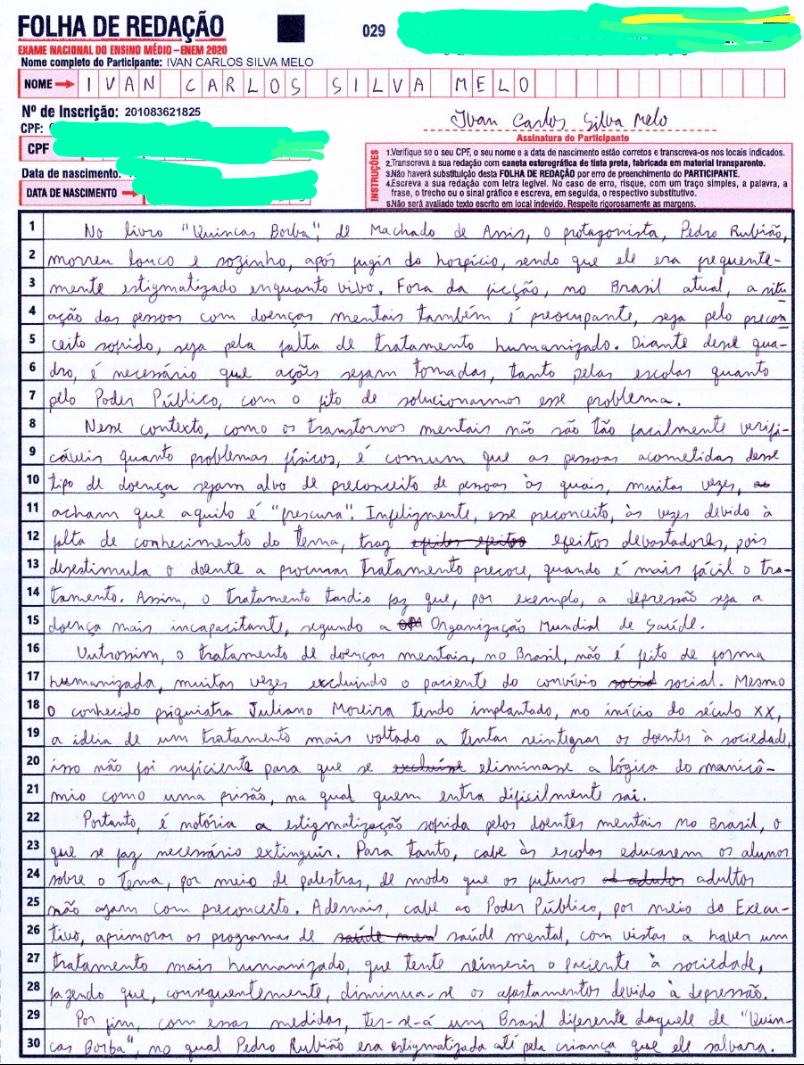 FOLHA DE REDAÇÃO
029
EXAME NACIONAL DO ENSINO MÉDIO – ENEM 2020
Nome completo do Participante: IVAN CARLOS SILVA MELO
NOME → IVAN CARLOS SILVA MELO
Nº de Inscrição: 201083621825
Ivan Carlos Silva Melo
Assinatura do Participante
CPF:
CPF
Data de nascimento:
DATA DE NASCIMENTO →
INSTRUÇÕES
1.Verifique se o seu CPF, o seu nome e a data de nascimento estão corretos e transcreva-os nos locais indicados.
2.Transcreva a sua redação com caneta esferográfica de tinta preta, fabricada em material transparente.
3.Não haverá substituição desta FOLHA DE REDAÇÃO por erro de preenchimento do PARTICIPANTE.
4.Escreva a sua redação com letra legível. No caso de erro, risque, com um traço simples, a palavra, a
frase, o trecho ou o sinal gráfico e escreva, em seguida, o respectivo substitutivo.
5.Não será avaliado texto escrito em local indevido. Respeite rigorosamente as margens.
1 No livro "Quincas Borba", de Machado de Assis, o protagonista, Pedro Rubião,
2 morreu louco e sozinho, após fugir do hospício, sendo que ele era frequente-
3 mente estigmatizado enquanto vivo. Fora da ficção, no Brasil atual, a situ
4 ação das pessoas com doenças mentais também é preocupante, seja pelo precon
5 ceito sofrido, seja pela falta de tratamento humanizado. Diante desse qua-
6 dro, é necessário que ações sejam tomadas, tanto pelas escolas quanto
7 pelo Poder Público, com o fito de solucionarmos esse problema.
8 Nesse contexto, como os transtornos mentais não são tão facilmente verifi-
9 cáveis quanto problemas físicos, é comum que as pessoas acometidas desse
10 tipo de doença sejam alvo de preconceito de pessoas às quais, muitas vezes, as
11 acham que aquilo é "frescura". Infelizmente, esse preconceito, às vezes devido à
12 falta de conhecimento do tema, traz efeitos efeitos efeitos devastadores, pois
13 desestimula o doente a procurar tratamento precoce, quando é mais fácil o tra-
14 tamento. Assim, o tratamento tardio faz que, por exemplo, a depressão seja a
15 doença mais incapacitante, segundo a Organização Mundial de Saúde.
16 Outrossim, o tratamento de doenças mentais, no Brasil, não é feito de forma
17 humanizada, muitas vezes excluindo o paciente do convívio social social. Mesmo
18 o conhecido psiquiatra Juliano Moreira tendo implantado, no início do século XX,
19 a ideia de um tratamento mais voltado a tentar reintegrar os doentes à sociedade,
20 isso não foi suficiente para que se excluísse eliminasse a lógica do manicô-
21 mio como uma prisão, na qual quem entra dificilmente sai.
22 Portanto, é notória a estigmatização sofrida pelos doentes mentais no Brasil, o
23 que se faz necessário extinguir. Para tanto, cabe às escolas educarem os alunos
24 sobre o tema, por meio de palestras, de modo que os futuros adultos
25 não ajam com preconceito. Ademais, cabe ao Poder Público, por meio do Execu-
26 tivo, aprimorar os programas de saúde men saúde mental, com vistas a haver um
27 tratamento mais humanizado, que tente reinserir o paciente à sociedade,
28 fazendo que, consequentemente, diminua-se os afastamentos devido à depressão.
29 Por fim, com essas medidas, ter-se-á um Brasil diferente daquele de "Quin-
30 cas Borba", no qual Pedro Rubião era estigmatizado até pela criança que ele salvara.